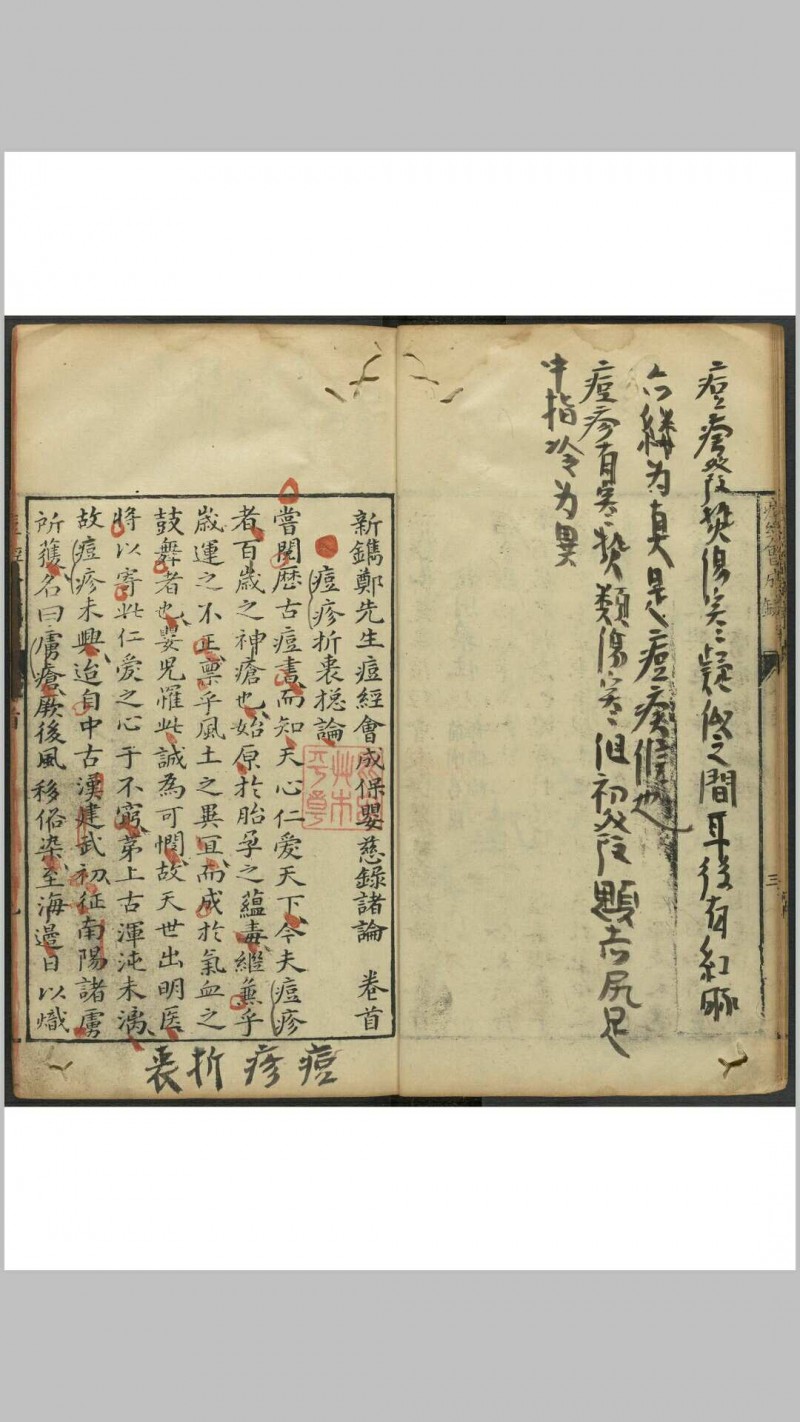 痘瘡發熱傷寒疑似之間耳後有紅脈
六縷為真是痘疾候也
痘疹有寒熱類傷寒但初發顋赤尻足
中指冷為異
新鐫鄭先生痘經會成保嬰慈錄諸論　卷首
痘疹折衷揔論
嘗閱歷古痘書而知天心仁愛天下今夫痘疹
者百歲之神瘡也始原於胎孕之蘊毒繼蕪乎
歲運之不正禀乎風土之異宜而成於氣血之
鼓舞者也嬰児罹此誠為可憫故天世出明医
將以寄此仁愛之心于不窮第上古渾沌未漓
故痘疹未興迨自中古漢建武初征南陽諸虜
所獲名曰虜瘡厥後風移俗染至海邊日以熾
痘疹折衷